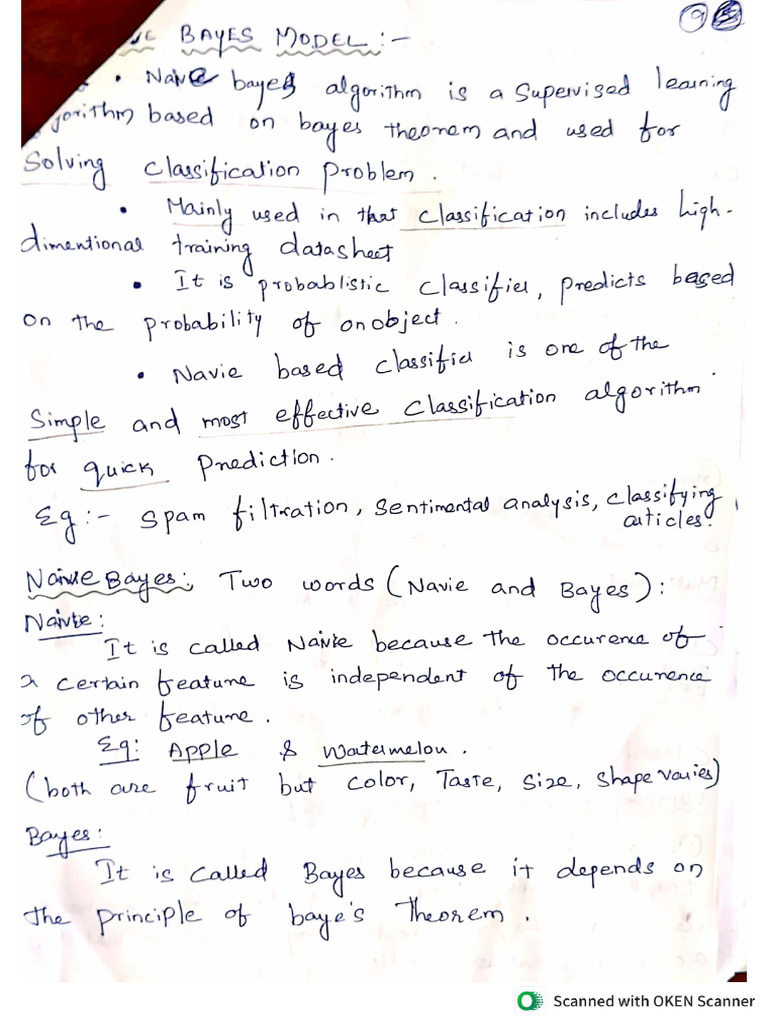 BAYES MODEL :-
• Naive bayes algorithm is a Supervised learning
gorithm based on bayes theorem and used for
Solving classification problem.
• Mainly used in that classification includes high-
dimentional training datasheet
• It is probablistic classifier, predicts based
on the probability of on object.
• Navie based classifier is one of the
Simple and most effective classification algorithm
for quick prediction.
Eg :- Spam filtration, Sentimental analysis, classifying
articles.
Naive Bayes: Two words (Navie and Bayes):
Naive:
It is called Naive because the occurence of
a certain feature is independent of the occurence
of other feature.
Eg: Apple & Watermelon.
(both are fruit but color, Taste, Size, Shape varies)
Bayes:
It is called Bayes because it depends on
the principle of baye's Theorem.
Scanned with OKEN Scanner